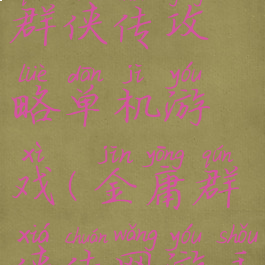 群侠传攻
lüè dān jī yóu
略单机游
xì jīn yōng qún
戏(金庸群
xiá chuán wǎng yóu shǒu